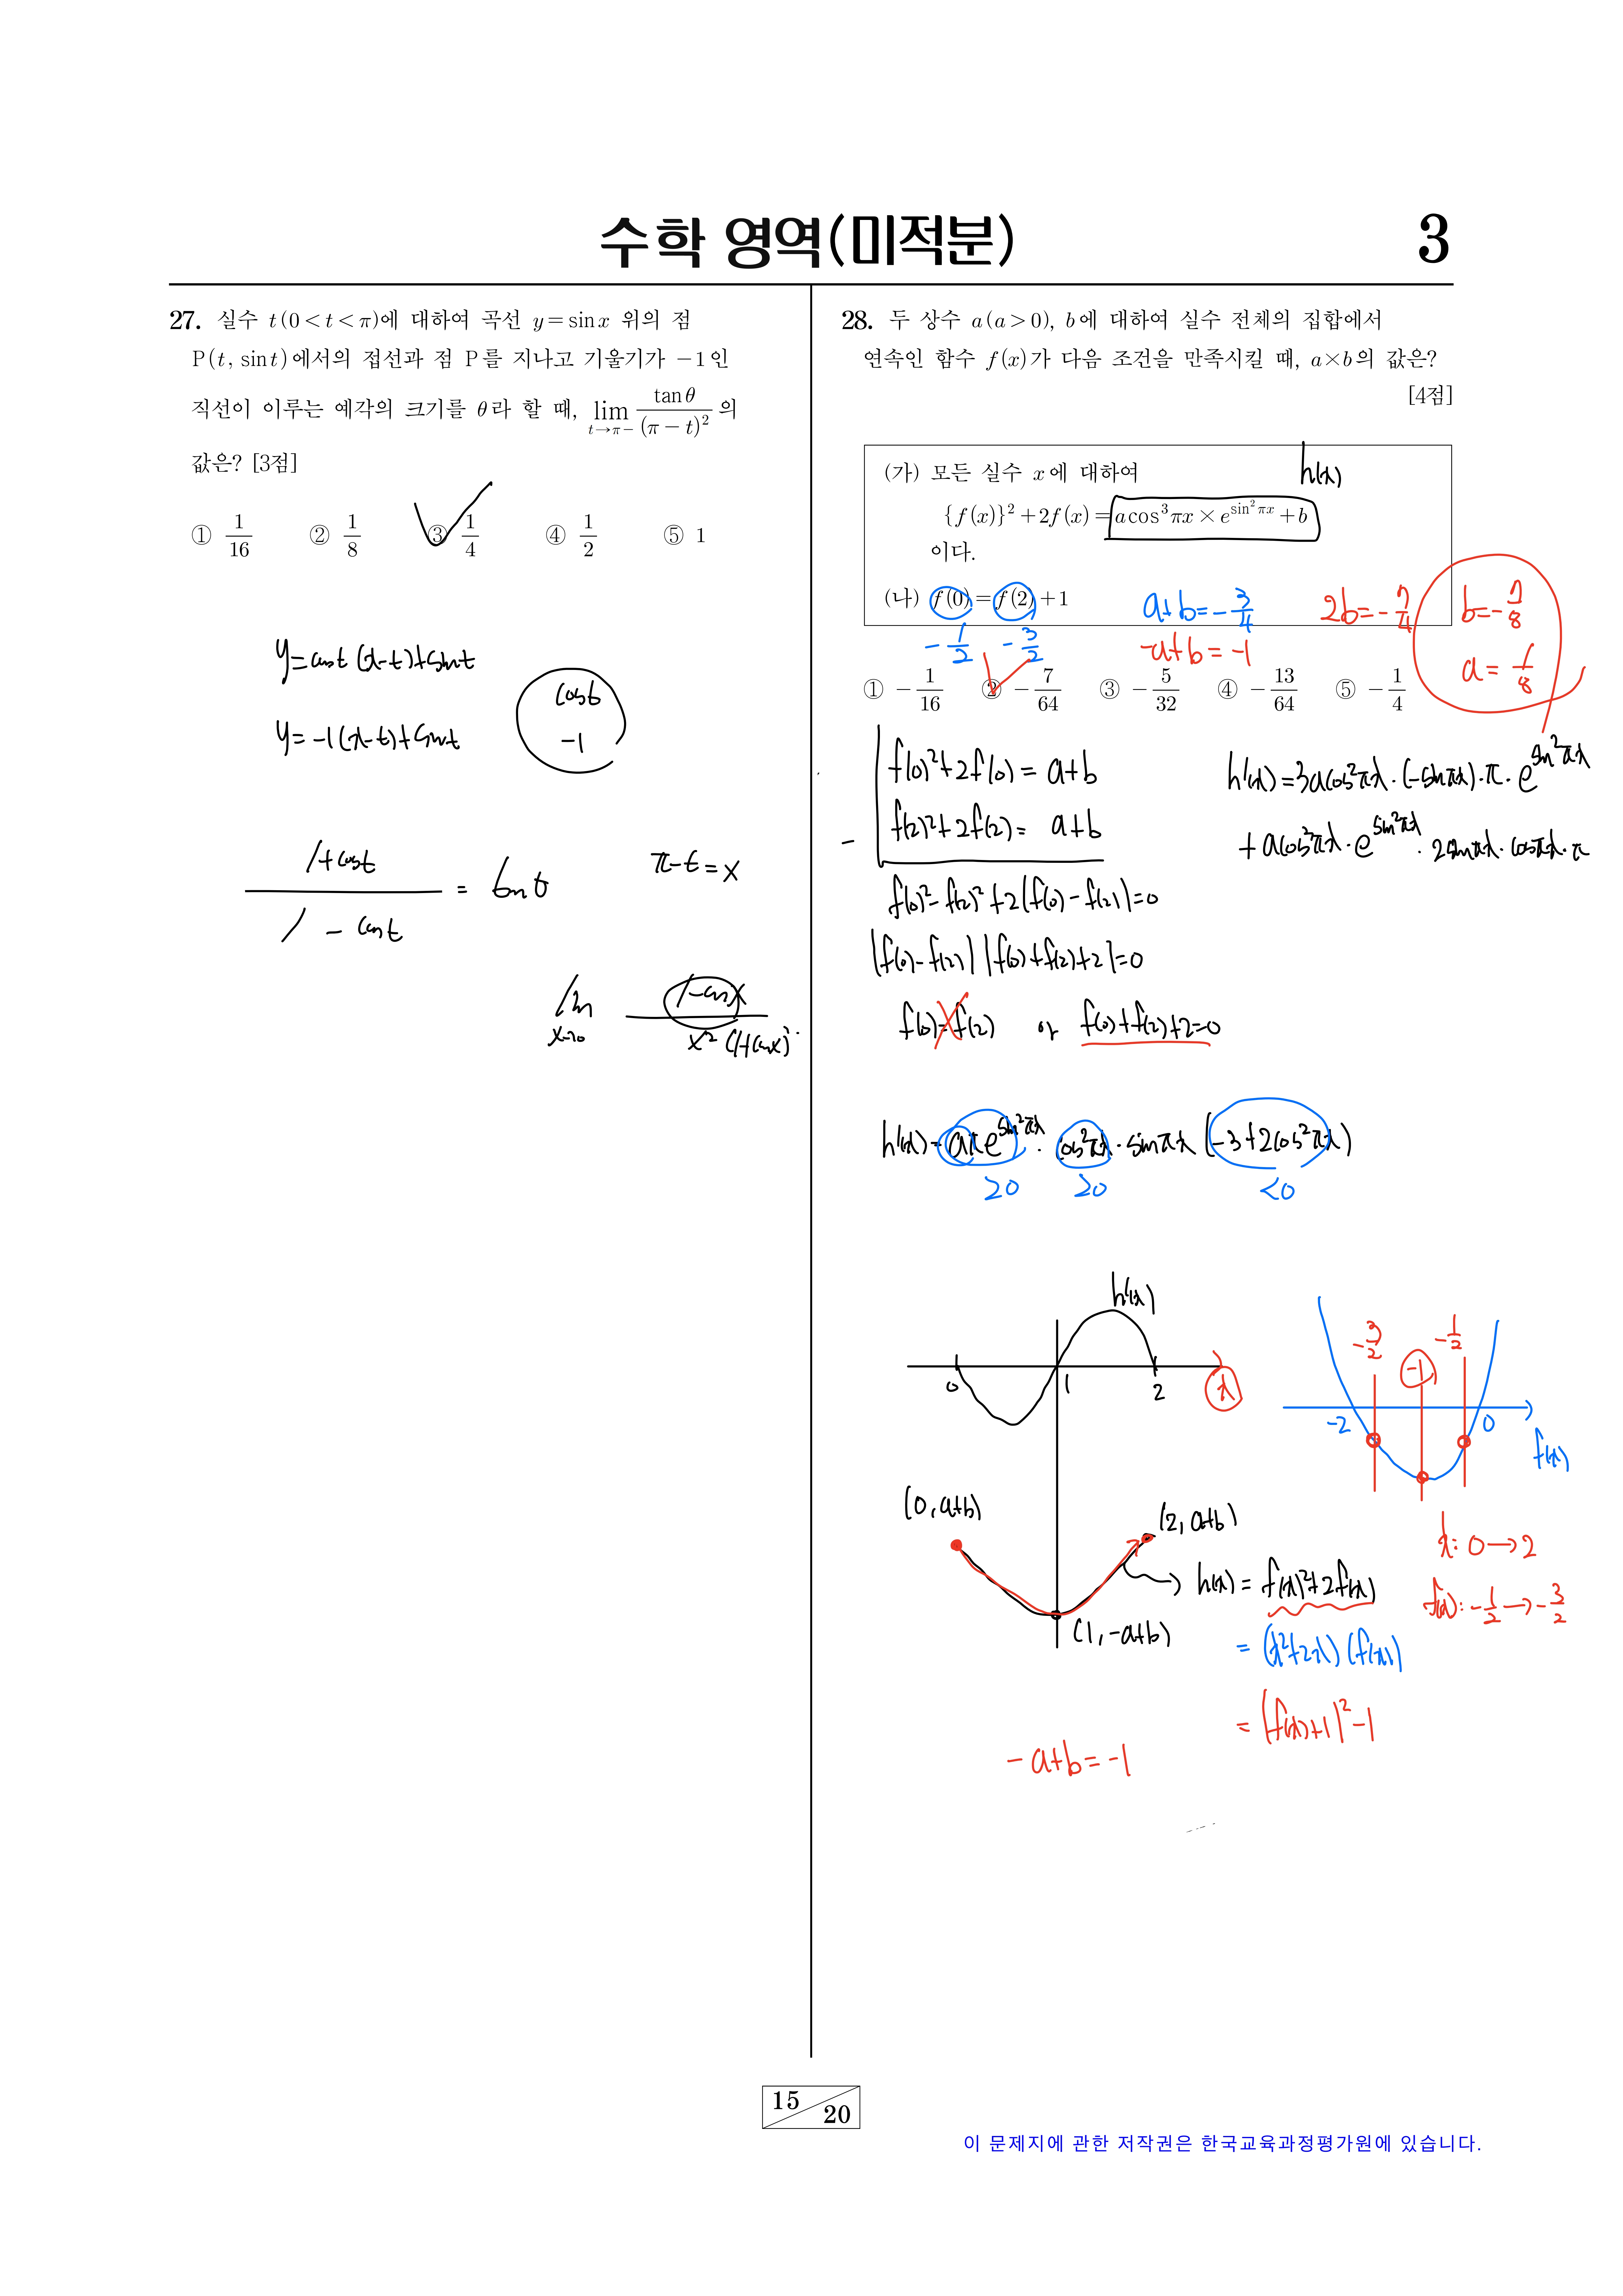 수학 영역(미적분)
3
27. 실수 t(0<t<π)에 대하여 곡선 y=sin x 위의 점
P(t, sin t)에서의 접선과 점 P를 지나고 기울기가 −1인
직선이 이루는 예각의 크기를 θ라 할 때, lim_{t→π−} tanθ/(π−t)² 의
값은? [3점]
① 1/16 ② 1/8 ③ 1/4 ④ 1/2 ⑤ 1
y=cost(x-t)+sint
y=-1(x-t)+sint
cost
-1
(1+cost)/(1-cost) = tanθ
π-t=x
lim_{x→0} (1-cosx)/(x²(1+cosx))
28. 두 상수 a(a>0), b에 대하여 실수 전체의 집합에서
연속인 함수 f(x)가 다음 조건을 만족시킬 때, a×b의 값은?
[4점]
(가) 모든 실수 x에 대하여
h(x)
{f(x)}²+2f(x)=a cos³πx×e^{sin²πx}+b
이다.
(나) f(0)=f(2)+1
-1/2 -3/2
a+b=-3/4
-a+b=-1
2b=-7/4
b=-7/8
a=1/8
① −1/16 ② −7/64 ③ −5/32 ④ −13/64 ⑤ −1/4
f(0)²+2f(0)=a+b
- f(2)²+2f(2)=a+b
f(0)²-f(2)²+2(f(0)-f(2))=0
(f(0)-f(2))(f(0)+f(2)+2)=0
f(0)=f(2) or f(0)+f(2)+2=0
h'(x)=3acos²πx·(-sinπx)·π·e^{sin²πx}
+acos³πx·e^{sin²πx}·2sinπx·cosπx·π
h'(x)=aπe^{sin²πx}·cos²πx·sinπx(-3+2cos²πx)
>0 >0 <0
h'(x)
0 1 2 x
-3/2 -1 -1/2
-2 0
f(x)
(0, a+b)
(2, a+b)
(1, -a+b)
h(x)=f(x)²+2f(x)
=(x²+2x)(f(x))
=(f(x)+1)²-1
x: 0→2
f(x): -1/2→-3/2
-a+b=-1
15
20
이 문제지에 관한 저작권은 한국교육과정평가원에 있습니다.